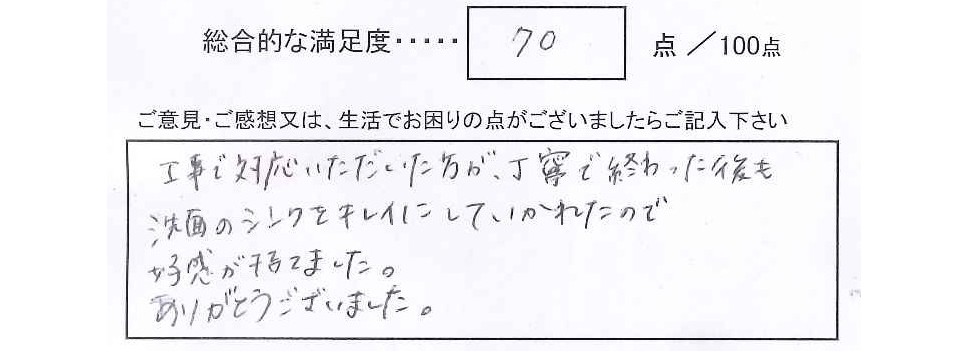 総合的な満足度・・・・・ 70 点 ／100点
ご意見・ご感想又は、生活でお困りの点がございましたらご記入下さい
工事で対応いただいた方が、丁寧で終わった後も
洗面のシンクをキレイにしていかれたので
好感が持てました。
ありがとうございました。